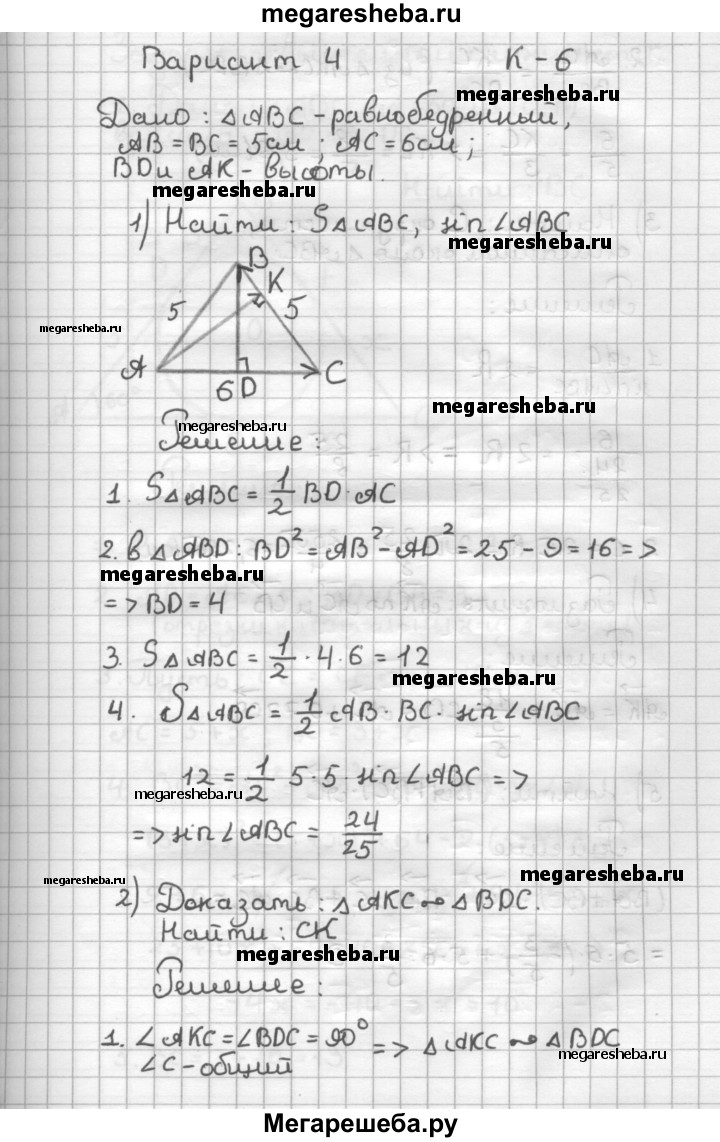 megaresheba.ru
Вариант 4 К-6
megaresheba.ru
Дано: △ABC - равнобедренный,
AB = BC = 5см; AC = 6см;
BD и AK - высоты.
megaresheba.ru
1) Найти: S△ABC, sin∠ABC
megaresheba.ru
B
K
5 5
megaresheba.ru
A C
6 D
megaresheba.ru
megaresheba.ru
Решение:
1. S△ABC = 1/2 BD·AC
2. в △ABD: BD² = AB² - AD² = 25 - 9 = 16 =>
megaresheba.ru
=> BD = 4
3. S△ABC = 1/2 · 4 · 6 = 12
megaresheba.ru
4. S△ABC = 1/2 AB · BC · sin∠ABC
12 = 1/2 5·5·sin∠ABC =>
megaresheba.ru
=> sin∠ABC = 24/25
megaresheba.ru
megaresheba.ru
2) Доказать: △AKC ∾ △BDC.
Найти: CK
megaresheba.ru
Решение:
1. ∠AKC = ∠BDC = 90° => △AKC ∾ △BDC
∠C - общий
megaresheba.ru
Мегарешеба.ру